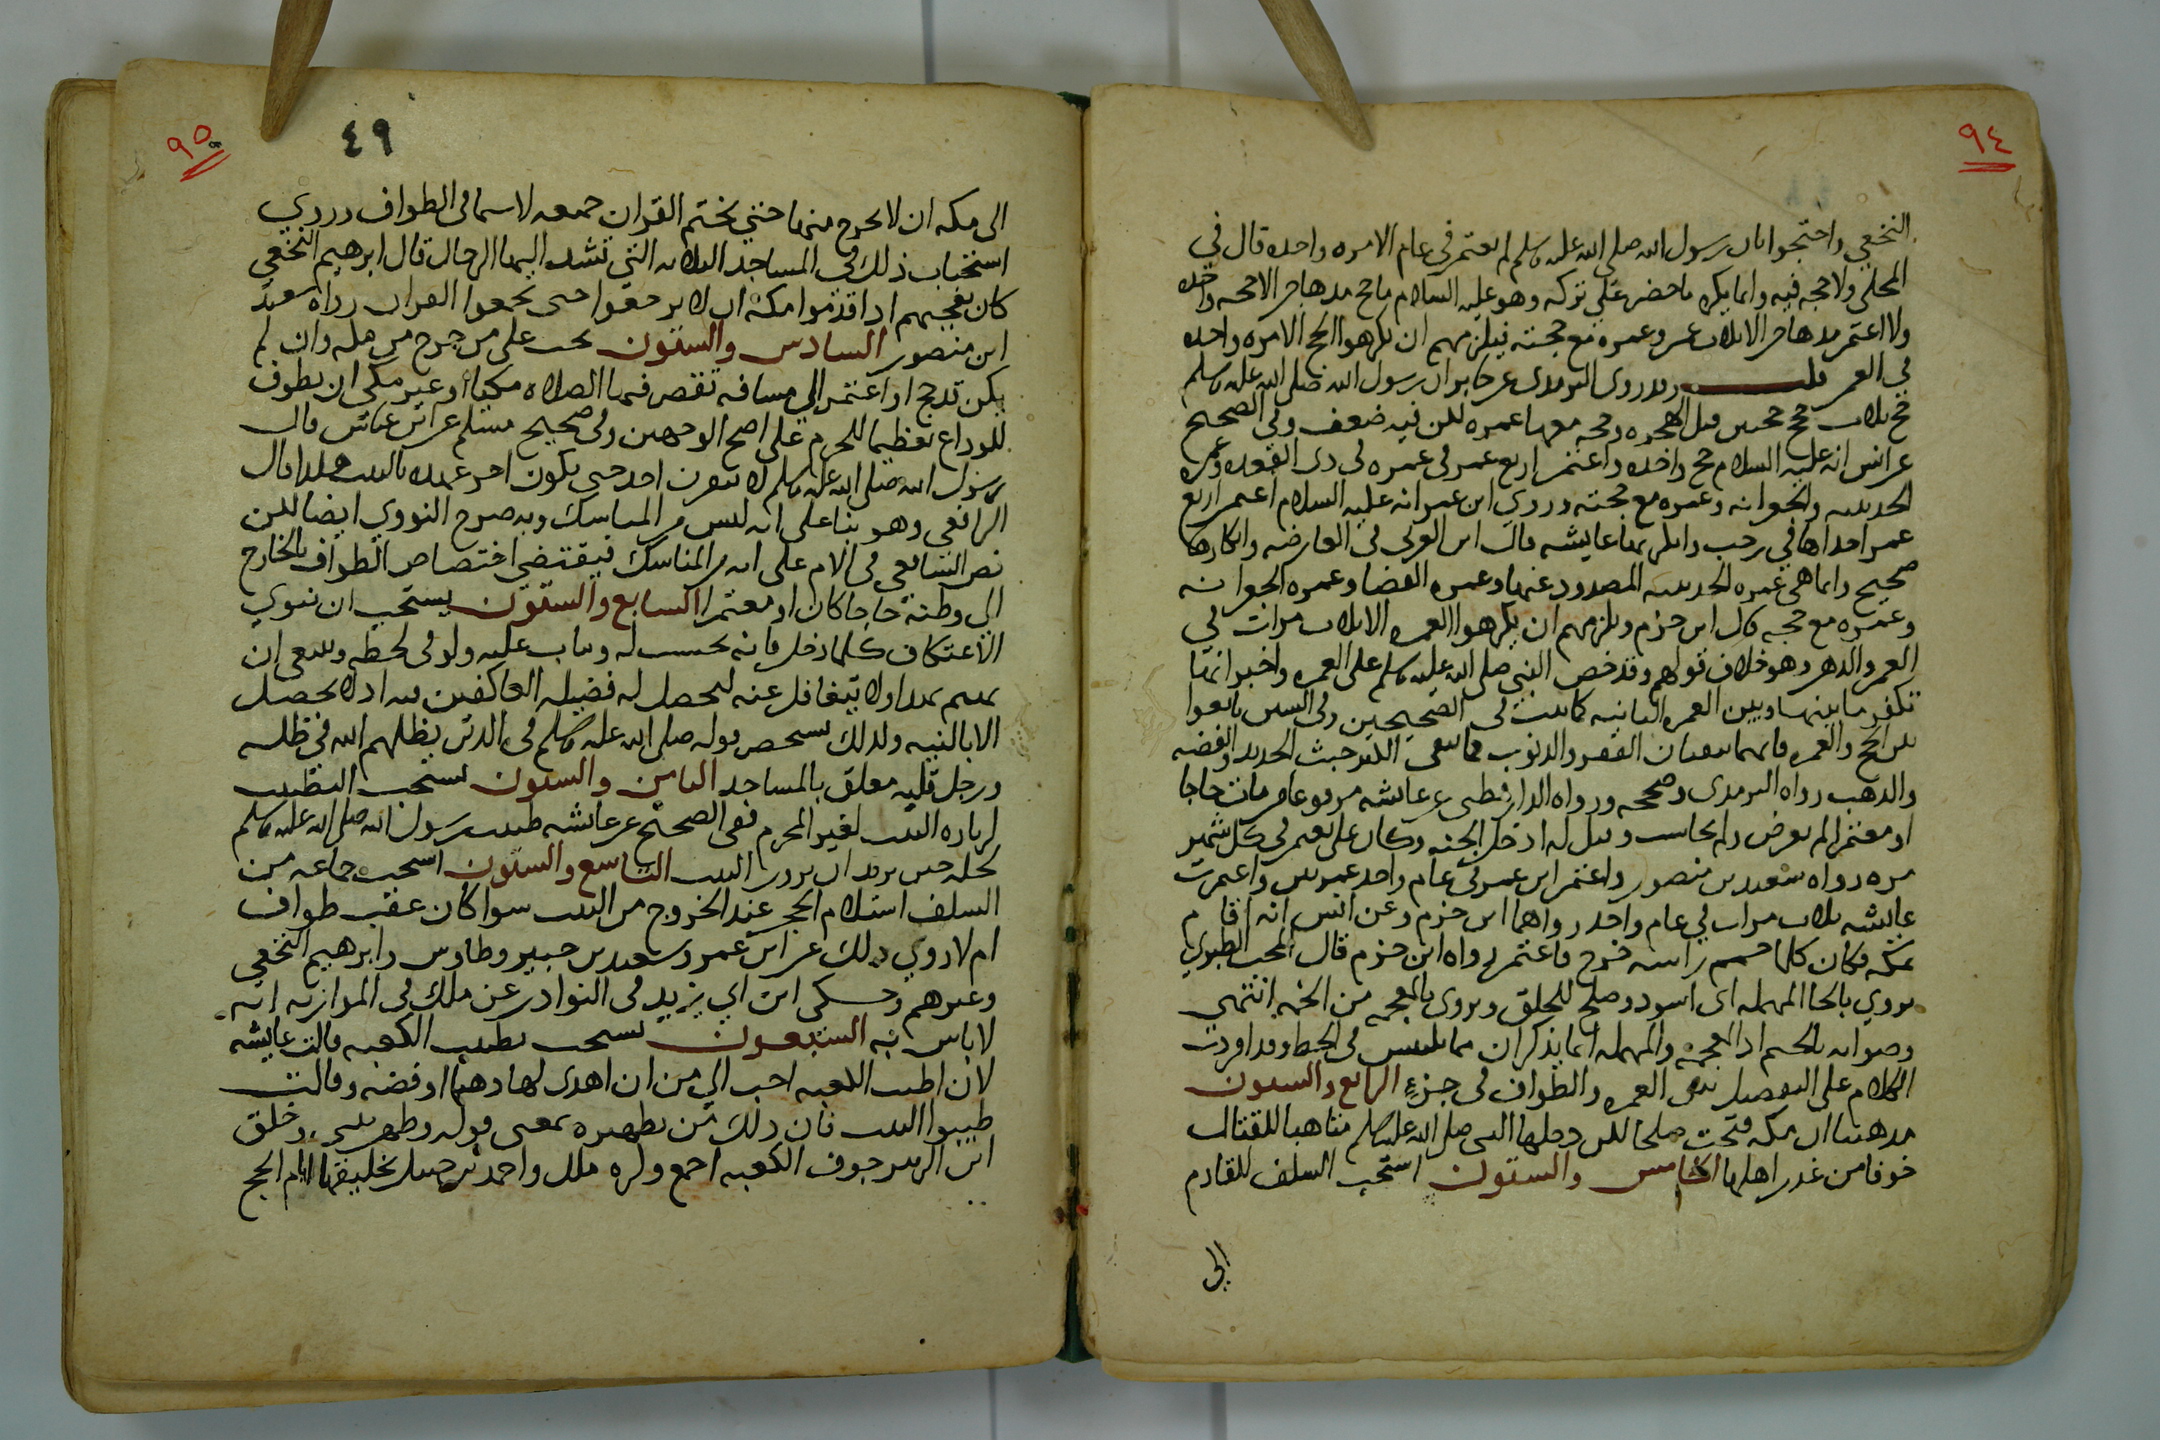 ٩٤
النخعي واحتجوا بان رسول الله صلى الله عليه وسلم لم يعتمر في عام الا مره واحده قال في
المحلى ولا حجه فيه وانما يكره ما حض على تركه وهو عليه السلام ما حج مذ هاجر الا حجه واحده
ولا اعتمر مذ هاجر الا ثلاث عمر وعمره مع حجته فيلزمهم ان يكرهوا الحج الا مره واحده
في العمر قلت وقد روى الترمذي عن جابر ان رسول الله صلى الله عليه وسلم
حج ثلاث حجج حجتين قبل الهجره وحجه معها عمره لكن فيه ضعف وفي الصحيح
عن انس انه عليه السلام حج واحده واعتمر اربع عمر في عمره في ذى القعده وعمره
الحديبيه والجعرانه وعمره مع حجته وروي ابن عمر انه عليه السلام اعتمر اربع
عمر احداها في رجب وانكرتها عايشه قال ابن العربى في العارضه وانكارها
صحيح وانما هي عمره الحديبيه المصدود عنها وعمره القضا وعمره الجعرانه
وعمره مع حجه قال ابن حزم ويلزمهم ان يكرهوا العمره الا ثلاث مرات في
العمر والدهر وهو خلاف قولهم وقد حض النبي صلى الله عليه وسلم على العمره واخبر انها
تكفر ما بينها وبين العمره الثانيه كما ثبت في الصحيحين وفي السنن تابعوا
بين الحج والعمره فانهما ينفيان الفقر والذنوب كما ينفى الكير خبث الحديد والفضه
والذهب رواه الترمذى وصححه ورواه الدارقطنى عن عايشه مرفوعا من مات حاجا
او معتمرا لم يعرض ولم يحاسب وقيل له ادخل الجنه وكان على يعتمر في كل شهر
مره رواه سعيد بن منصور واعتمر ابن عمر في عام واحد عمرتين واعتمرت
عايشه ثلاث مرات في عام واحد رواهما ابن حزم وعن انس انه اقام
بمكه فكان كلما حمم راسه خرج فاعتمر رواه ابن حزم قال المحب الطبري
يروي بالحا المهمله اى اسود وصلح للحلق ويروى بالمعجمه من الخمه انتهى
وصوابه بالجيم اذ المعجمه والمهمله انما يذكران مما يلتبس في الخط وقد افردت
الكلام على التفضيل بين العمره والطواف في جزء الرابع والستون
مذهبنا ان مكه فتحت صلحا لكن دخلها النبى صلى الله عليه وسلم متاهبا للقتال
خوفا من غدر اهلها الخامس والستون استحب السلف للقادم
الى
٩٥
٤٩
الى مكه ان لا يخرج منها حتي يختم القران جمعه لا سيما في الطواف وروي
استحباب ذلك في المساجد الثلاثه التي تشد اليها الرحال قال ابرهيم النخعي
كان يعجبهم اذا قدموا مكة ان لا يرجعوا حتى يجمعوا القران رواه سعيد
ابن منصور السادس والستون يجب على من خرج من مكه وان لم
يكن قد حج او اعتمر الي مسافه تقصر فيها الصلاه مكيا او غير مكي ان يطوف
للوداع تعظيما للحرم على اصح الوجهين وفي صحيح مسلم عن ابن عباس قال
رسول الله صلى الله عليه وسلم لا ينفرن احد حتى يكون اخر عهده بالبيت هكذا قال
الرافعي وهو بنا على انه ليس من المناسك وبه صرح النووي ايضا لكن
نص الشافعي في الام على انه من المناسك فيقتضي اختصاص الطواف بالخارج
الى وطنه حاجا كان او معتمرا السابع والستون يستحب ان ينوي
الاعتكاف كلما دخل فانه يحسب له ويثاب عليه ولو في لحظه وينبغى ان
يهتم بهذا ولا يتغافل عنه ليحصل له فضيله العاكفين فيه اذ لا يحصل
الا بالنيه ولذلك يستحضر قوله صلى الله عليه وسلم في الذين يظلهم الله في ظله
ورجل قلبه معلق بالمساجد الثامن والستون يستحب التطيب
لزياره البيت لغير المحرم ففي الصحيح عن عايشه طيبت رسول الله صلى الله عليه وسلم
لحله حين يريد ان يزور البيت التاسع والستون استحب جماعه من
السلف استلام الحجر عند الخروج من البيت سوا كان عقب طواف
ام لا روي ذلك عن ابن عمر وسعيد بن جبير وطاوس وابرهيم النخعي
وغيرهم وحكى ابن ابي زيد في النوادر عن ملك في الموازيه انه
لا باس به السبعون يستحب تطييب الكعبه قالت عايشه
لان اطيب الكعبه احب الي من ان اهدى لها ذهبا او فضه وقالت
طيبوا البيت فان ذلك من تطهيره يعنى قوله وطهر بيتي وخلق
ابن الزبير جوف الكعبه اجمع وكره ملك واحمد بن حنبل تخليقها ايام الحج